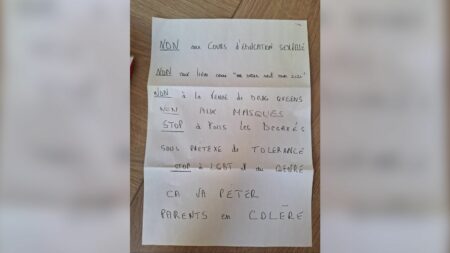 NON aux COURS d'EDUCATION SEXUELLE
NON aux livres comme "
NON à la VENUE de DRAG QUEENS
NON AUX MASQUES
STOP à TOUS les DEGRÉS
SOUS PRETEXE de TOLERANCE
STOP à LGBT et au GENRE
CA VA PETER
PARENTS en COLERE